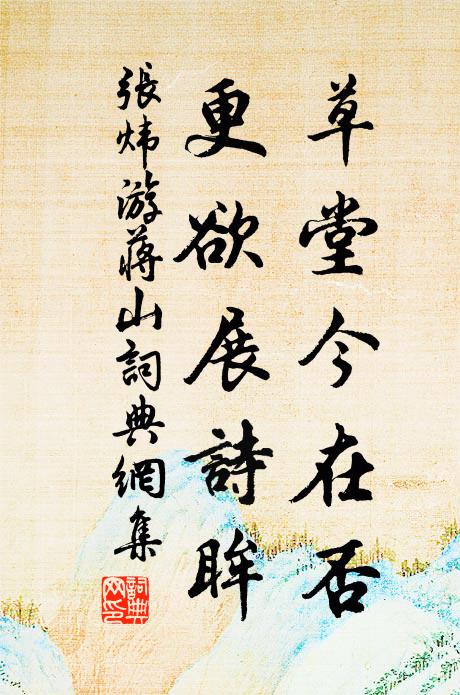 草堂今在否
更欲展詩眸
張炜游蔣山詞典網集
詞典